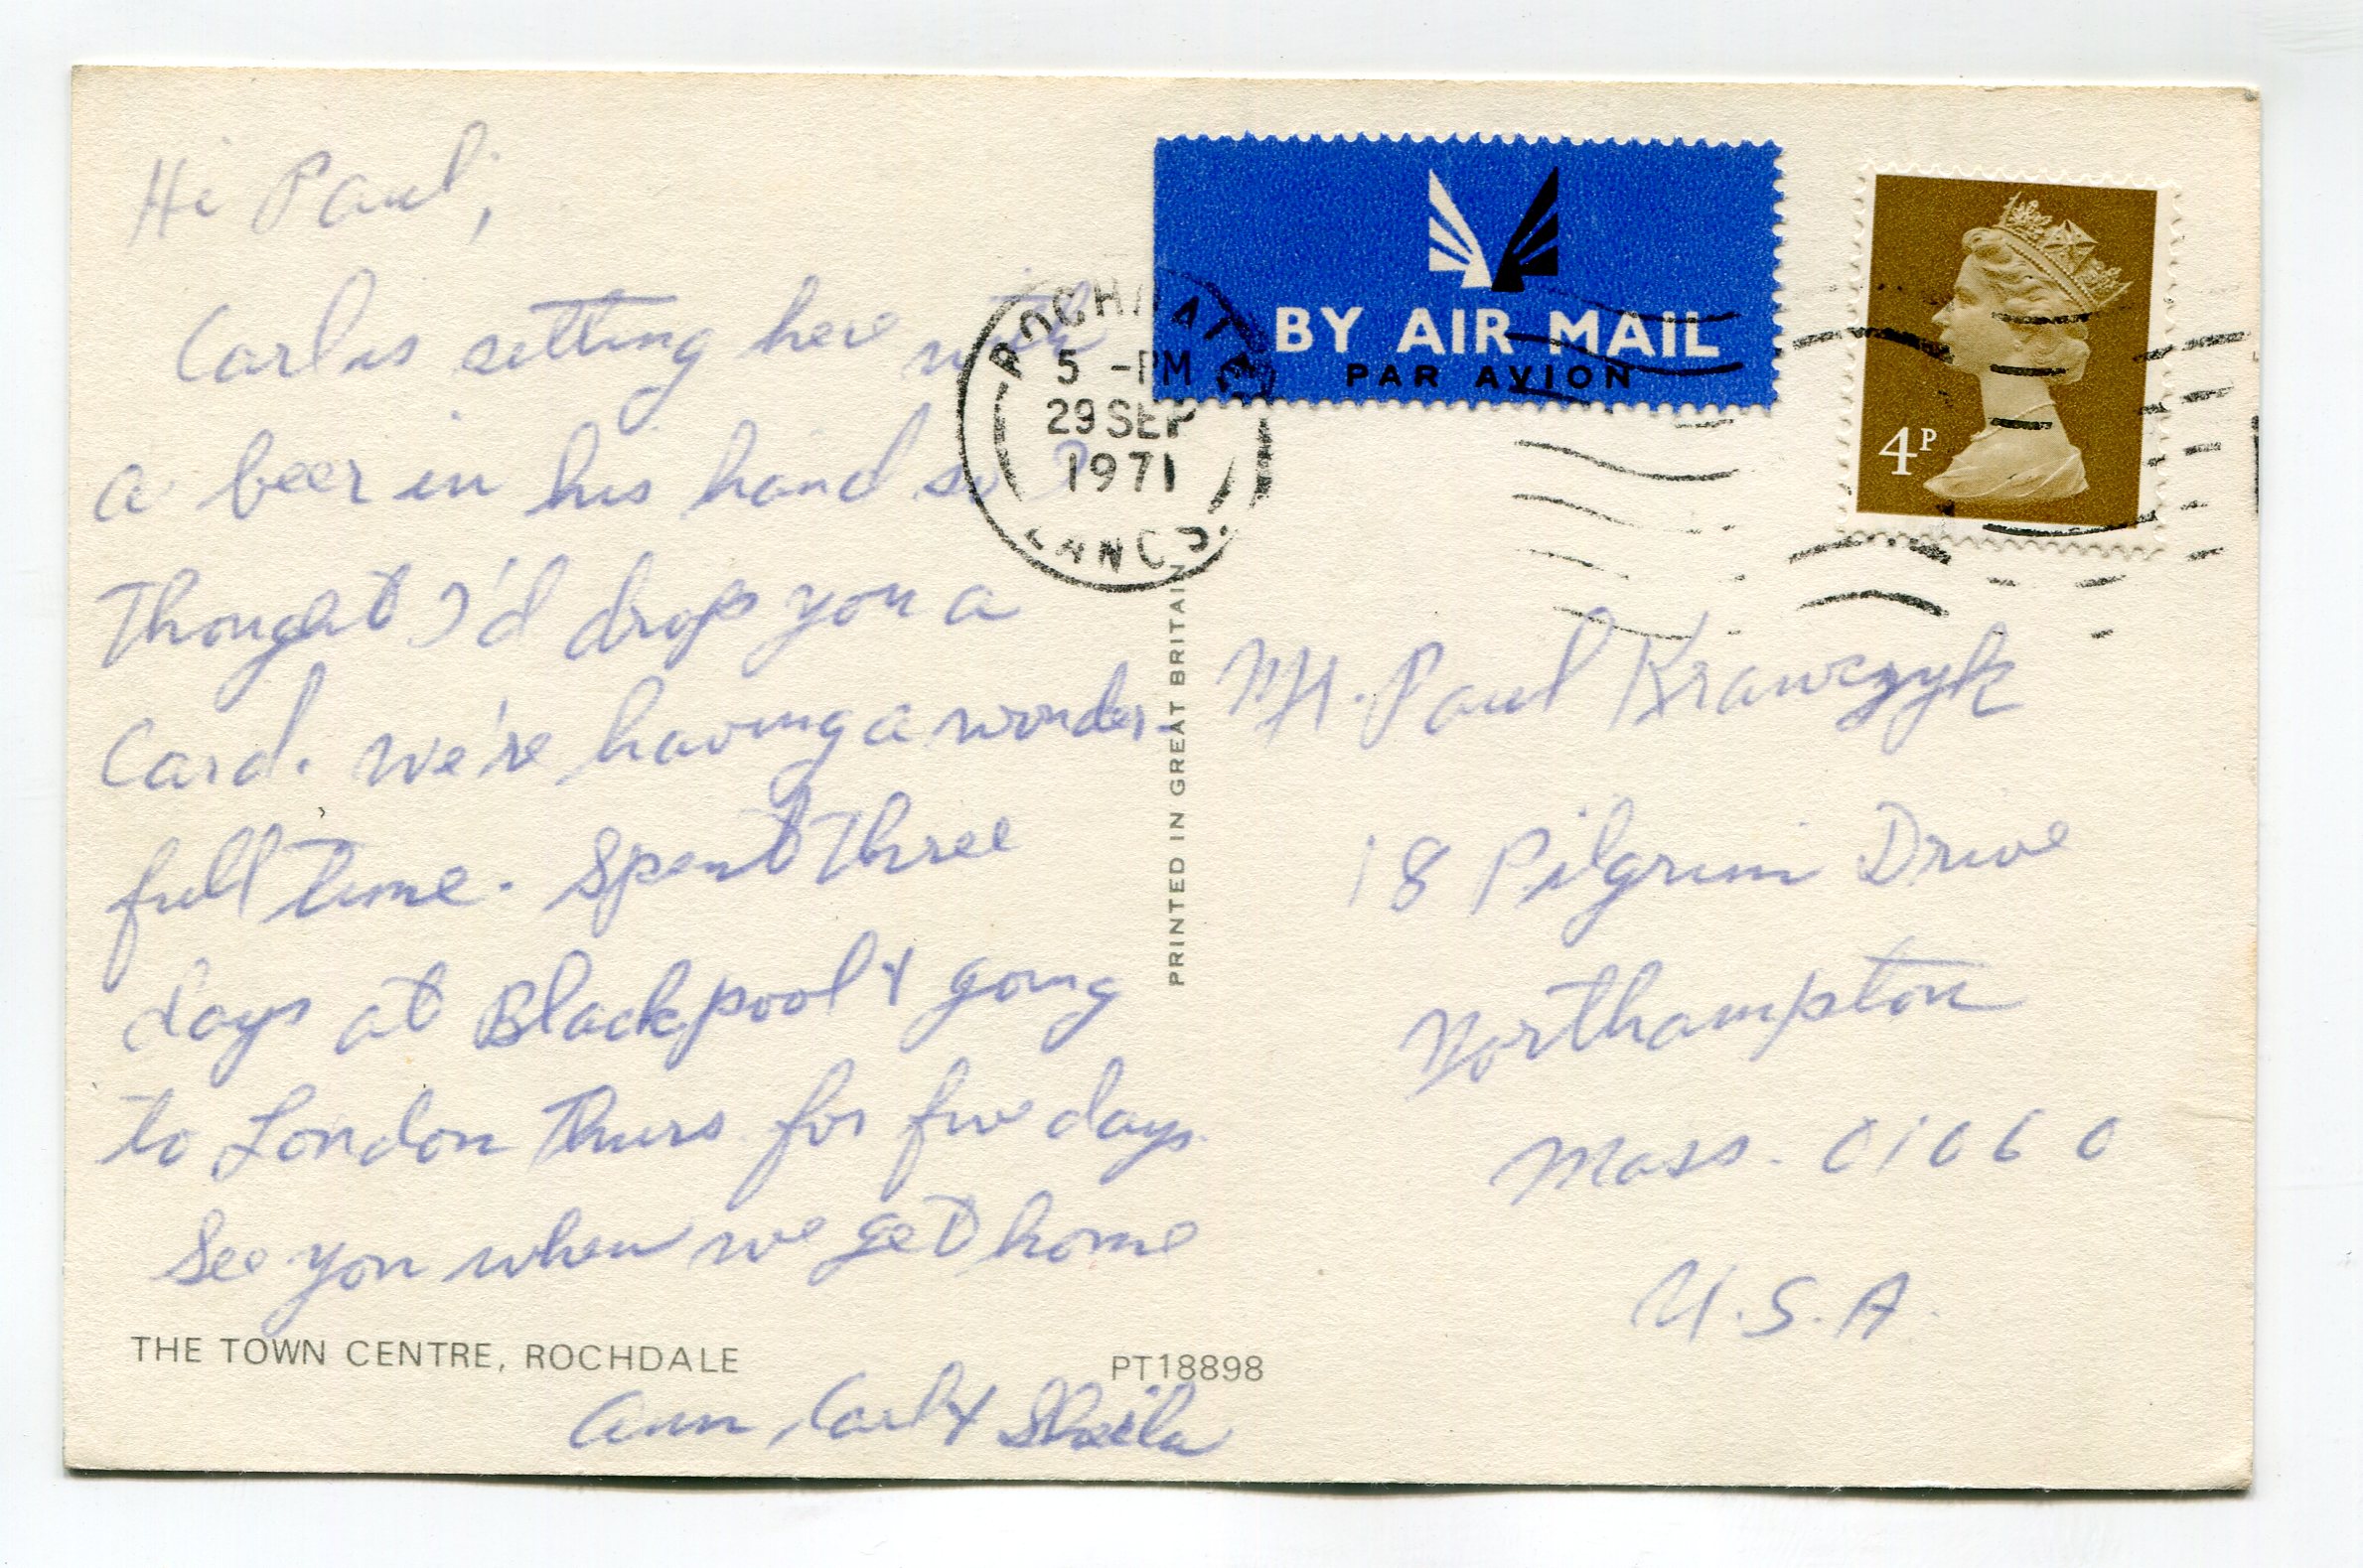 Hi Paul,
Carl is setting here with
a beer in his hand so I
thought I'd drop you a
Card. We're having a wonder-
full time. Spent three
days at Blackpool & going
to London Thurs for few days.
See you when we get home
Ann, Carl & Sheila
THE TOWN CENTRE, ROCHDALE
PT18898
PRINTED IN GREAT BRITAIN
ROCHDALE
5 -PM
29 SEP
1971
LANCS.
BY AIR MAIL
PAR AVION
4P
Mr. Paul Krawczyk
18 Pilgrim Drive
Northampton
Mass. 01060
U.S.A.